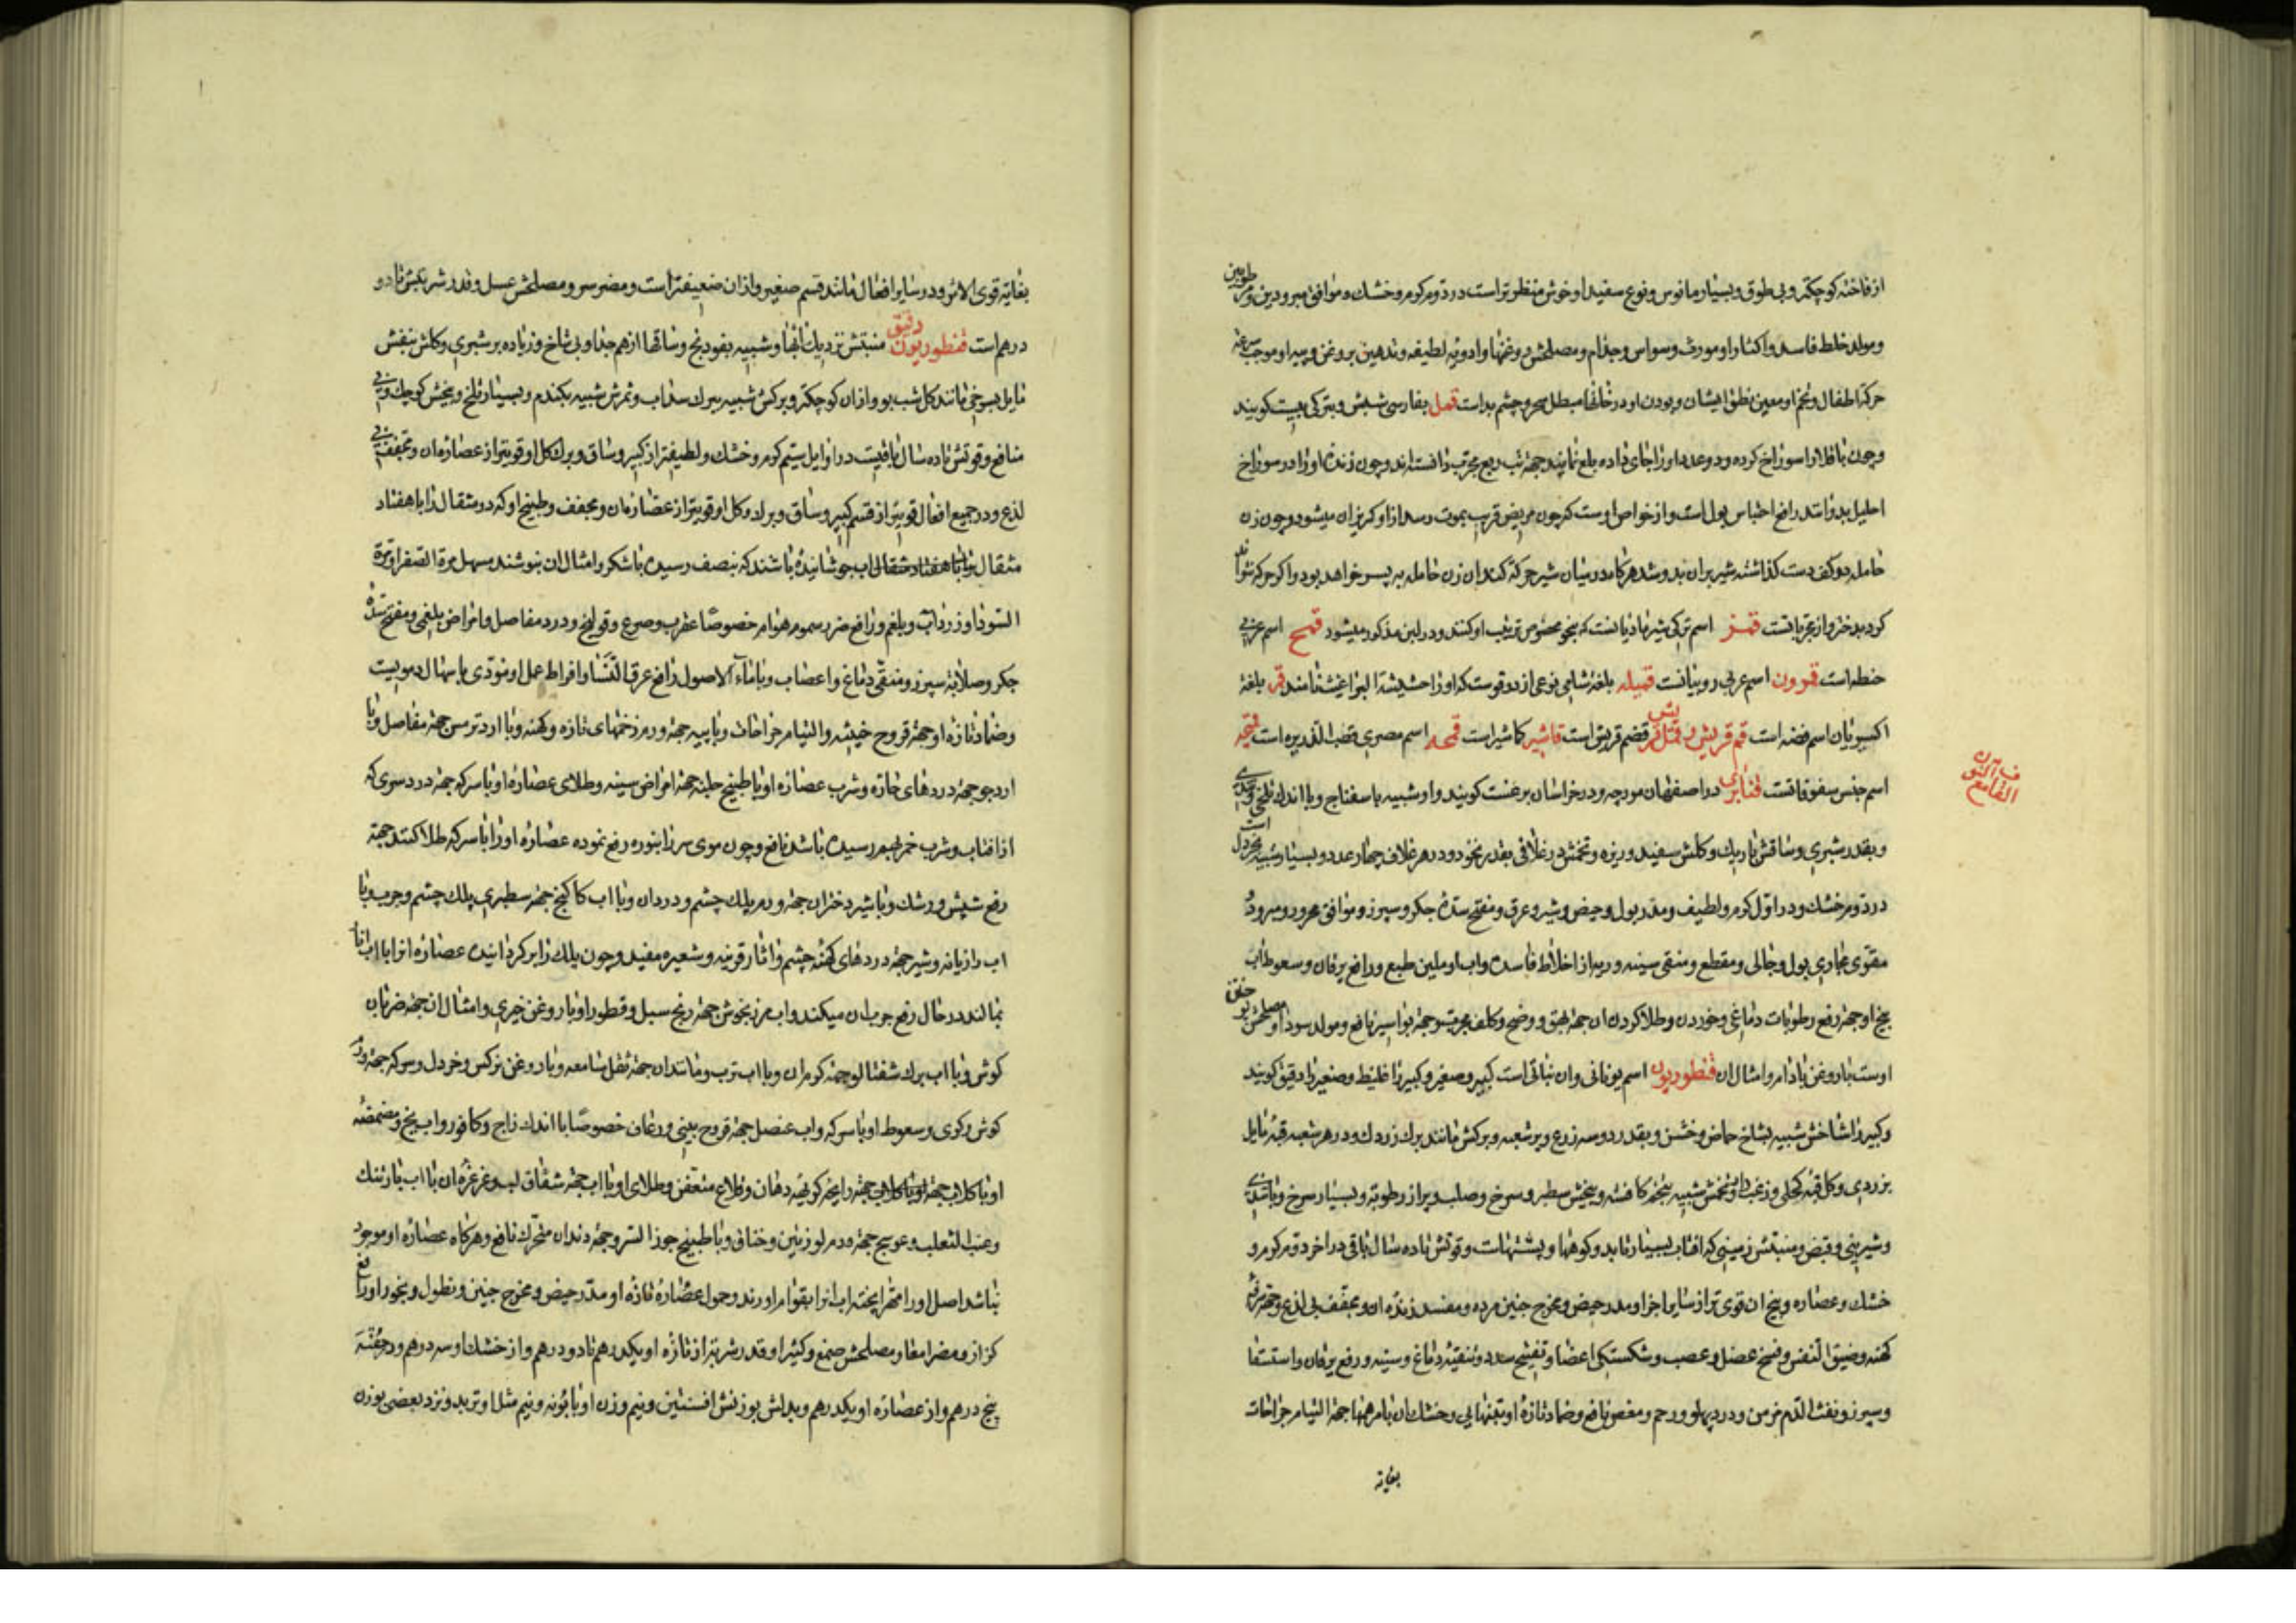 از فاخته کوچکتر و بی طوق و بسیار مانوس و نوع سفید او خوش منظرتر است در دوم کرم و خشک و موافق مبرودین و مرطوبین
و مولد خلط فاسد و اکثار او مورث وسواس و جذام و مصلحش روغنها و ادویه لطیفه و تدهین بروغن و پیه او موجب سرعة
حرکة اطفال و تخم او معین نطق ایشان و بودن او در خانها مبطل سحر و چشم بد است قمل بفارسی شپش و بترکی بیت کویند
و چون باقلا را سوراخ کرده و دو عدد او را جای داده بلع نمایند جهة تب ربع مجرب دانسته اند و چون زنده او را در سوراخ
احلیل بدوانند رافع احتباس بول است و از خواص اوست که چون مریض قریب بموت رسد ازاو کریزان میشود و چون زن
حامله دو کف دست کذاشته شیر بران بدوشد هرکاه در میان شیر حرکة کند ان زن حامله به پسر خواهد بود و اکر حرکه نتواند
کرد بدختر و از مجربانست قمز اسم ترکی شیر مادیانست که بنحو مخصوص ترتیب او کنند و در لبن مذکور میشود قمح اسم عربی
حنطه است قمرون اسم عربی روبیانست قمیله بلغة شامی نوعی از دوقوست که او را حشیشة البراغیث نامند قمر بلغة
اکسیریان اسم فضه است قم قریش و قمل قریش قضم قریش است قاشیر کاشیر است قمحه اسم مصری قصب الذریره است قمیحه
اسم جنس سفوفاتست قنابری در اصفهان موچه و در خراسان برغست کویند و او شبیه باسفناج و با اندک تلخی و تندی است
و بقدر شبری و ساقش باریک و کلش سفید و ریزه و تخمش در غلافی بقدر نخود و در هر غلاف چهار عدد و بسیار شبیه بخردل
در دوم خشک و در اول کرم و لطیف و مدر بول و حیض و شیر و عرق و مفتح سده جکر و سپرز و موافق محرور و مبرود
مقوی مجاری بول و جالی و مقطع و منقی سینه و ریه از اخلاط فاسده و اب او ملین طبع و رافع یرقان و سعوط اب
بیخ او جهة رفع رطوبات دماغی و خوردن و طلا کردن ان جهة بهق و وضح و کلف مجرب و جهة بواسیر نافع و مولد سودا و مصلحش پختن
اوست با روغن بادام و امثال ان قنطوریون اسم یونانی و ان نباتی است کبیر و صغیر و کبیر را غلیظ و صغیر را دقیق کویند
و کبیر را شاخش شبیه بشاخ حماض و خشن و بقدر دو سه زرع و پر شعبه و برکش مانند برک زردک و در هر شعبه قبه مایل
بزردی و کل قبه کحلی و زغب دار و تخمش شبیه بتخم کافشه و بیخش سطبر و سرخ و صلب و پر از رطوبة و بسیار سرخ و با تندی
و شیرینی و قبض و منبتش زمینی که افتاب بسیار تابد و کوهها و پشتهاست و قوتش تا ده سال باقی در اخر دوم کرم و
خشک و عصاره و بیخ ان قوی تر از سایر اجزا و مدر حیض و مخرج جنین مرده و مفسد زنده ان و مجفف بی لذع و جهة سرفه
کهنه و ضیق النفس و فسخ عضل و عصب و شکستکی اعضا و تفتیح سدد و تنقیه دماغ و سینه و رفع یرقان و استسقا
و سپرز و نفث الدم مزمن و درد پهلو و رحم و مغص نافع و ضماد تازه او بتنهایی و خشک ان با مرهمها جهة التیام جراحات
بغایة
ف آن
القامع
بغایة قوی الاثر و در سایر افعال مانند قسم صغیر و از ان ضعیفتر است و مضر سر و مصلحش عسل و قدر شربتش تا دو
درهم است قنطوریون دقیق منبتش نزدیک ابها و شبیه بفودنج و ساقها از هم جدا و بی شاخ و زیاده بر شبری و کلش بنفش
مایل بسرخی مانند کل شب بو و ازان کوچکتر و برکش شبیه ببرک سداب و ثمرش شبیه بکندم و بسیار تلخ و بیخش کوچک و بی
منافع و قوتش تا ده سال باقیست در اوایل سیم کرم و خشک و لطیفتر از کبیر و ساق و برک کل او قویتر از عصاره ان و مجفف بی
لذع و در جمیع افعال قویتر از قسم کبیر و ساق و برک و کل او قویتر از عصاره ان و مجفف و طبیخ او که دو مثقال را با هفتاد
مثقال را با هفتاد مثقال اب جوشانیده باشند که بنصف رسیده با شکر و امثال ان بنوشند مسهل مرة الصفرا و مرة
السودا و زرداب و بلغم و رافع ضرر سموم هوام خصوصا عقرب و صرع و قولنج و درد مفاصل و امراض بلغمی و مفتح سده
جکر و صلابة سپرز و منقی دماغ و اعصاب و با ماء الاصول رافع عرق النسا و افراط عمل او مؤدی باسهال دمویست
و ضماد تازه او جهة قروح خبیثه و التیام جراحات و با پیه جهة ورم زخمهای تازه و کهنه و با ارد ترمس جهة مفاصل و با
ارد جو جهة دردهای حاره و شرب عصاره او با طبیخ حلبه جهة امراض سینه و طلای عصاره او با سرکه جهة درد سری که
از افتاب و شرب خمر بهم رسیده باشد نافع و چون موی سر را بنوره رفع نموده عصاره او را با سرکه طلا کنند جهة
رفع شپش و رشک و با شیر دختران جهة ورم پلک چشم و درد ان و با اب کاکنج جهة سطبری پلک چشم و جرب و با
اب رازیانه و شیر جهة دردهای کهنه چشم و اثار قرنیه و شعیره مفید و چون پلک را برکردانیده عصاره انرا با اب انار
بمالند در حال رفع جرب ان میکند و اب مرزنجوش جهة ریح سبل و قطور او با روغن خیری و امثال ان جهة ضربان
کوش و با اب برک شفتالو جهة کرم ان و با اب ترب و مانند ان جهة ثقل سامعه و با روغن نرکس و خردل و سرکه جهة درد
کوش و کری و سعوط او با سرکه و اب عنصل جهة قروح بینی و رعاف خصوصا با اندک زاج و کافور و اب یخ و مضمضه
او با کلاب جهة او با کلاب جهة رایحه کریهه دهان و قلاع متعفن و طلای او با اب جهة شقاق لب و غرغره ان با اب بارتنک
و عنب الثعلب و عوسج جهة ورم لوزتین و خناق و با طبیخ جوز السرو جهة دندان متحرک نافع و هرکاه عصاره او موجود
نباشد اصل او را مهرا پخته اب انرا بقوام اورند و حمول عصاره تازه او مدر حیض و مخرج جنین و نطول و بخور او رافع
کزاز و مضر امعا و مصلحش صمغ و کتیرا و قدر شربتر از تازه او یکدرهم تا دو درهم و از خشک او سه درهم و در حقنه
پنج درهم و از عصاره او یکدرهم و بدلش بوزنش افسنتین و نیم وزن او بابونه و نیم مثل او تربد و نزد بعضی بوزن